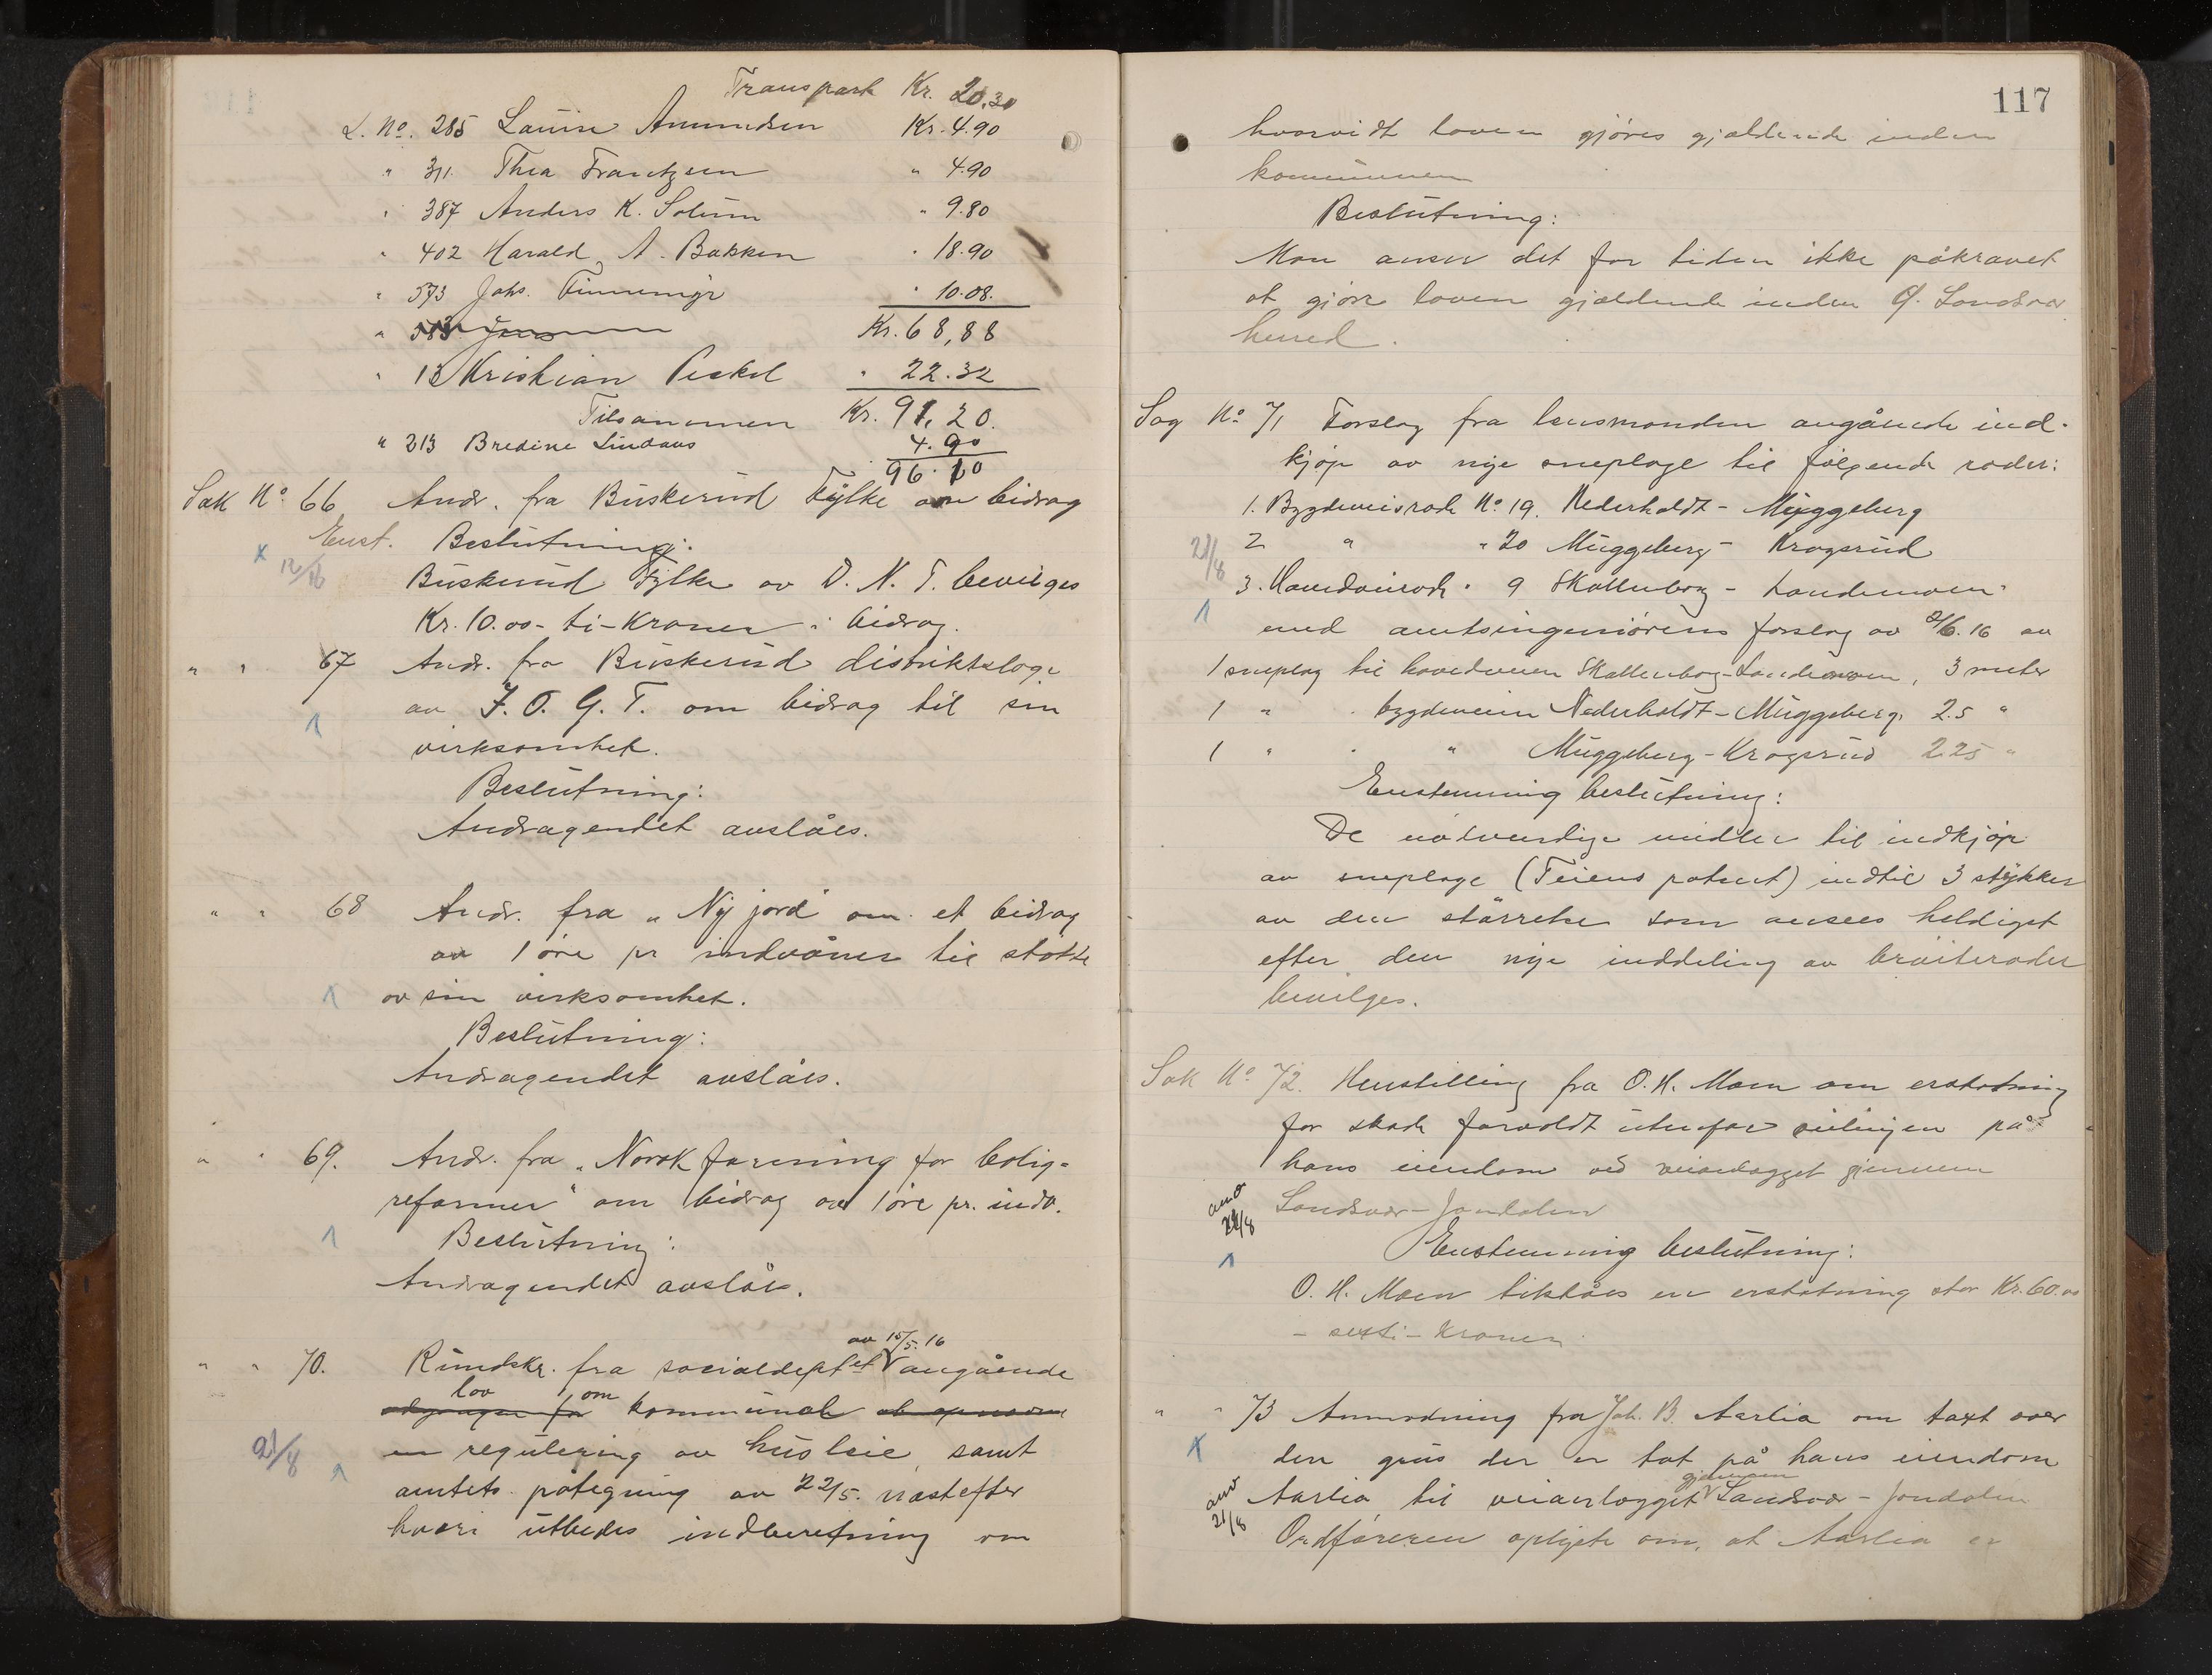 Transport Kr. 20.30
L. No. 285 Lauise Amundsen Kr. 4.90
" 311. Thea Frantzsen " 4.90
" 387 Anders K. Solum " 9.80
" 402 Harald A. Bakken " 18.90
" 573 Johs. " 10.08.
" 583 Jens Kr. 68,88
" 13 Kristian Peckel " 22.32
Tilsammen Kr. 91,20.
" 213 Bredine Lindaas 4.90
96.10
Sak No. 66 Andr. fra Buskerud Fylke om bidrag
Enst. Beslutning:
x 12/16 Buskerud Fylke av D. N. T. bevilges
Kr. 10.00 - ti - Kroner i bidrag.
" " 67 Andr. fra Buskerud distriktsloge
av I. O. G. T. om bidrag til sin
virksomhet.
Beslutning:
Andragendet avslåes.
" " 68 Andr. fra "Ny jord" om et bidrag
av 1 øre pr indvåner til støtte
av sin virksomhet.
Beslutning:
Andragendet avslåes.
" " 69. Andr. fra "Norsk forening for bolig-
reformer" om bidrag av 1 øre pr. indv.
Beslutning:
Andragendet avslåes.
av 15/5. 16
" " 70. Rundskr. fra socialdeptet angående
lov om
kommunal
21/8 en regulering av husleie, samt
amtets påtegning av 22/5. næstefter
hvori utbedes indberetning om
117
hvorvidt loven gjøres gjældende inden
kommunen
Beslutning:
Man anser det for tiden ikke påkrævet
at gjøre loven gjældende inden Y. Sandsvær
herred.
Sag No. 71 Forslag fra lensmanden angående ind-
kjøp av nye sneploge til følgende roder:
1. Bygdeveisrode No. 19. Nederholdt - Muggeberg
21/8 2 " " 20 Muggeberg - Krogsrud
3. Hovedveirode " 9 Skollenborg - Landemoen.
med amtsingeniørens forslag av 2/6. 16 av
1 sneplog til hovedveien Skollenborg - Landemoen, 3 meter
1 " " bygdeveien Nederholdt - Muggeberg, 2.5 "
1 " " " Muggeberg - Krogsrud 2.25 "
Enstemmig beslutning:
De nødvendige midler til indkjøp
av sneploge (Teiens patent) indtil 3 stykker
av den størrelse som ansees heldigst
efter den nye inddeling av brøiteroder
bevilges.
Sak No. 72. Henstilling fra O. H. Moen om erstatning
for skade forvoldt utenfor på
hans eiendom ved veianlægget gjennem
Sandsvær - Jondalen
21/8
Enstemmig beslutning:
O. H. Moen tilståes en erstatning stor Kr. 60.00
- seksti - Kroner.
" " 73 Anmodning fra Joh. B. Aaslia om takst over
x den grus der er tat på hans eiendom
gjennem
Aaslia til veianlægget Sandsvær - Jondalen
21/8
Ordføreren oplyste om, at Aaslia er